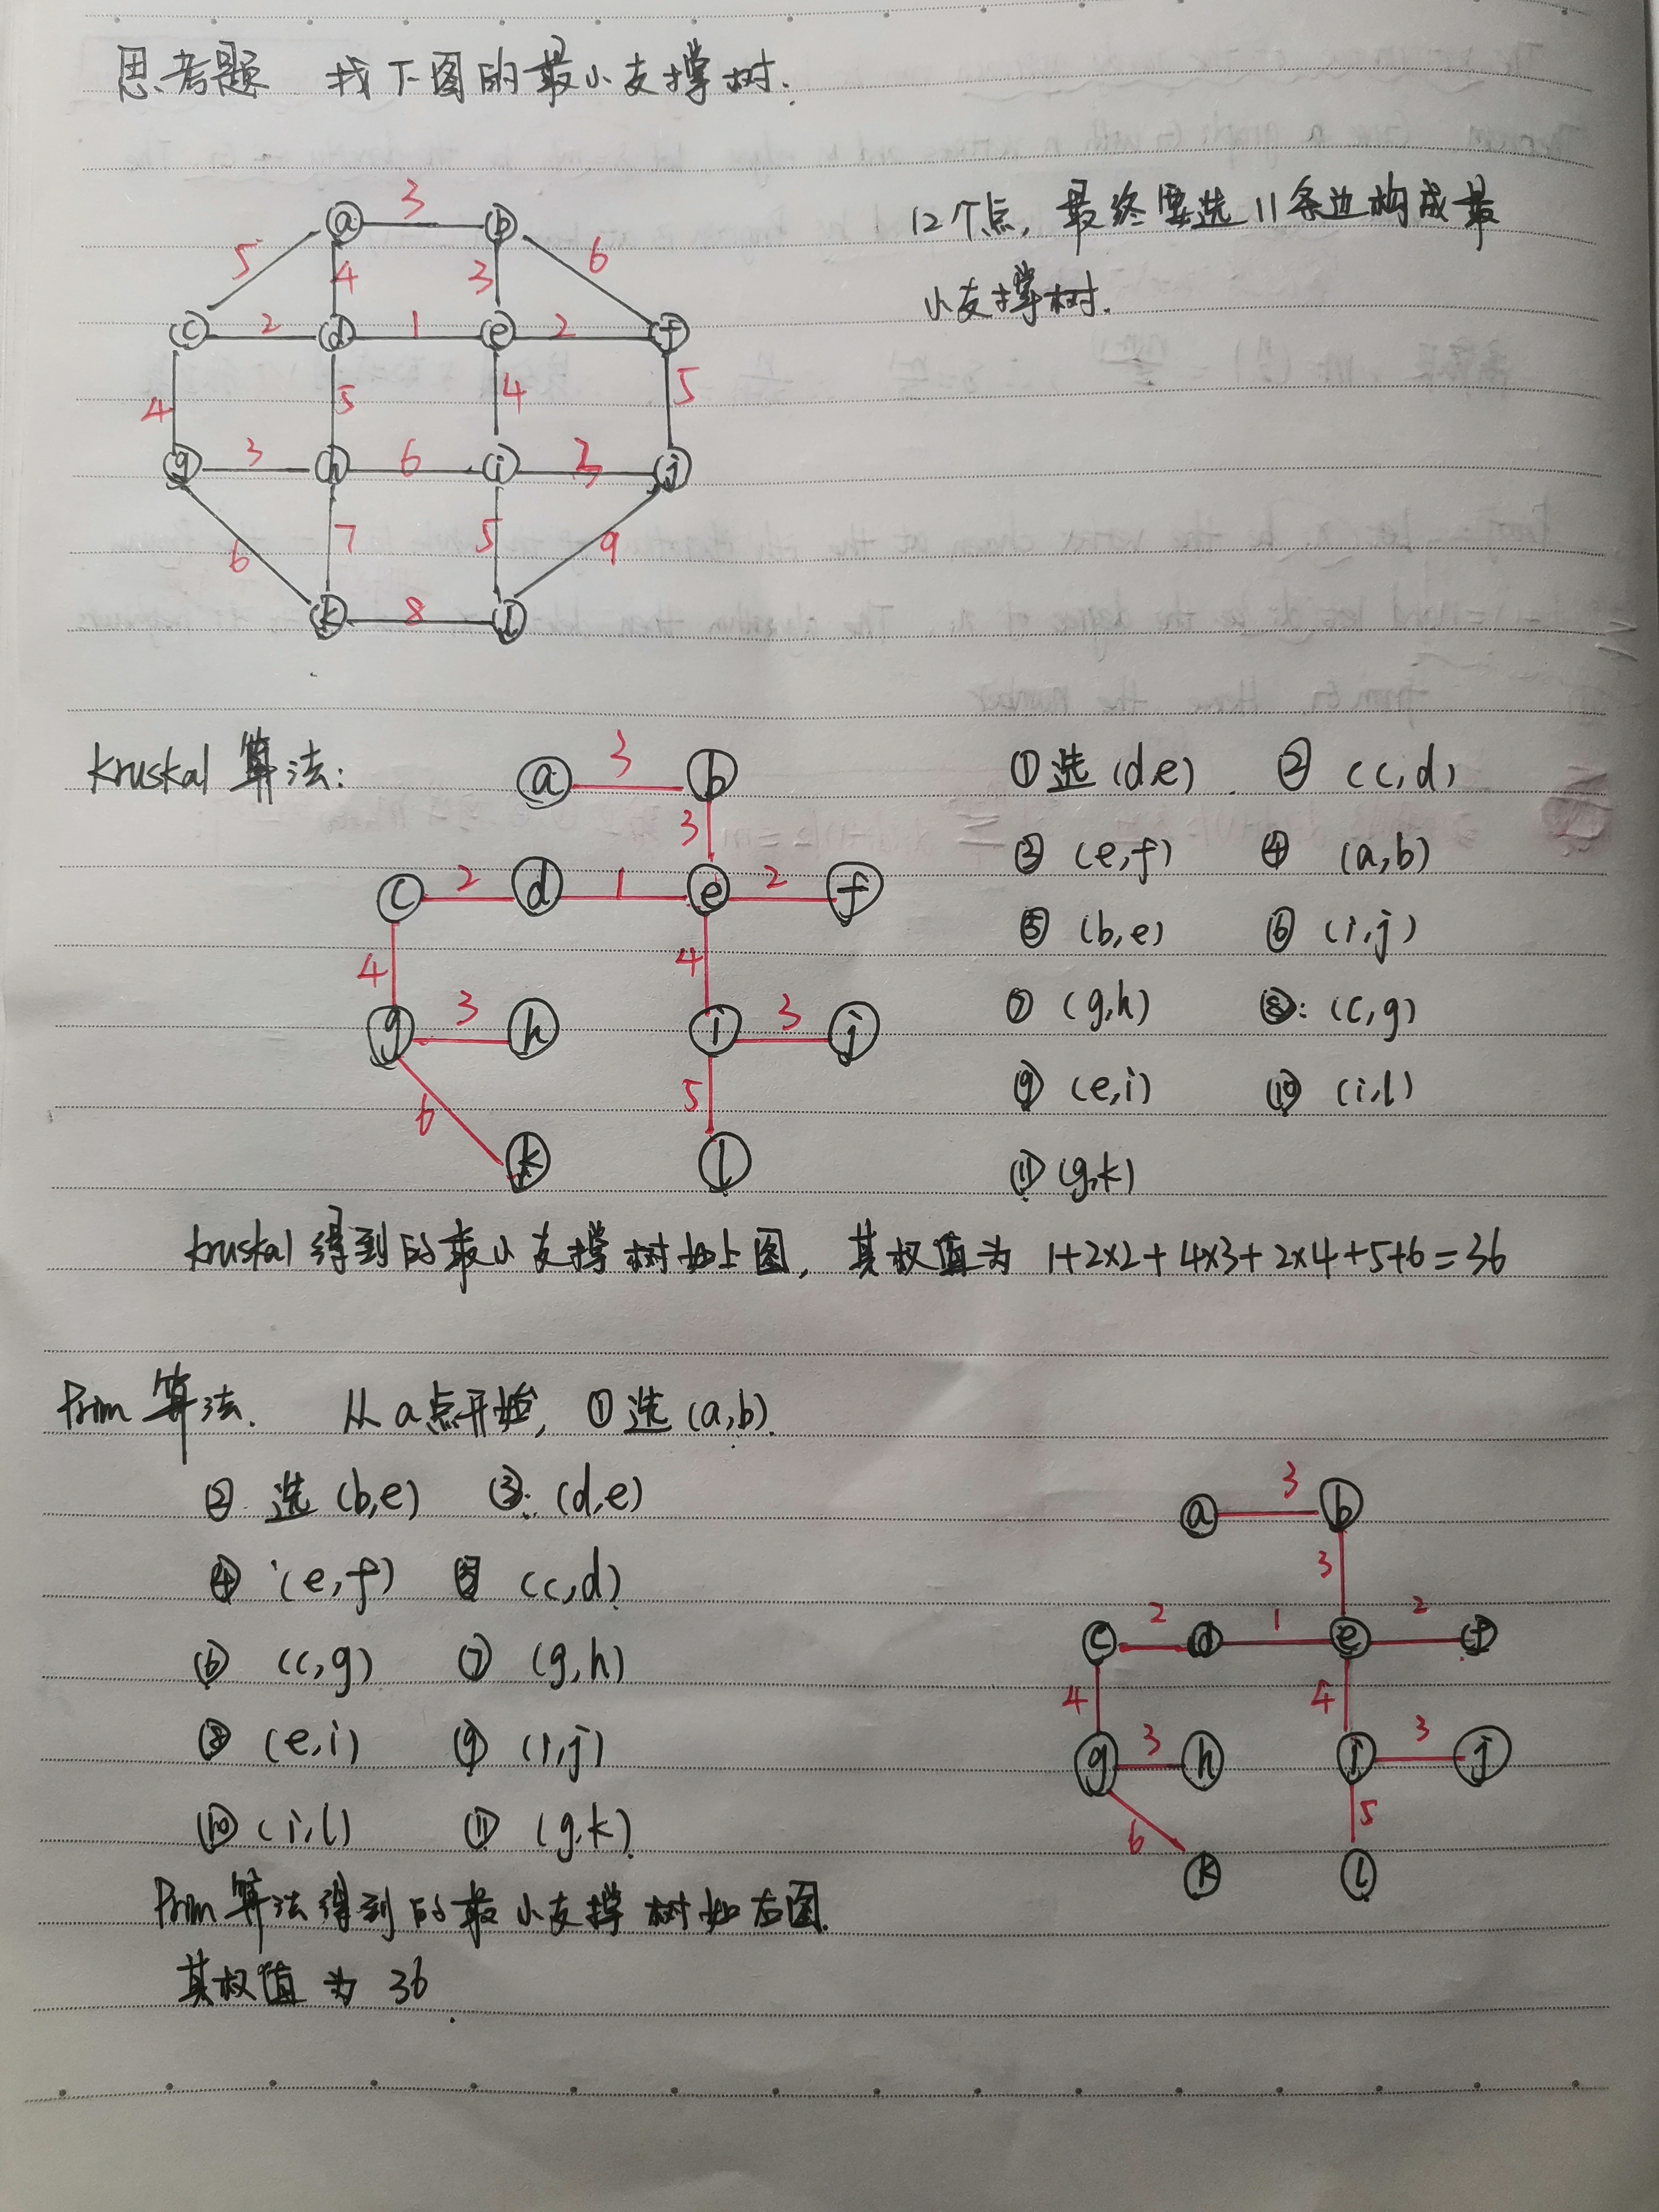 思考题 找下图的最小支撑树.
12个点, 最终要选11条边构成最
小支撑树.
3
a b
5 4 3 6
c 2 d 1 e 2 f
4 5 4 5
g 3 h 6 i 3 j
6 7 5 9
k 8 l
kruskal 算法:
a 3 b
3
c 2 d 1 e 2 f
4 4
g 3 h i 3 j
6 5
k l
① 选 (d,e) ② (c,d)
③ (e,f) ④ (a,b)
⑤ (b,e) ⑥ (i,j)
⑦ (g,h) ⑧: (c,g)
⑨ (e,i) ⑩ (i,l)
⑪ (g,k)
kruskal 得到的最小支撑树如上图, 其权值为 1+2×2+4×3+2×4+5+6=36
Prim 算法. 从a点开始, ①选(a,b).
② 选 (b,e) ③: (d,e)
④ (e,f) ⑤ (c,d)
⑥ (c,g) ⑦ (g,h)
⑧ (e,i) ⑨ (i,j)
⑩ (i,l) ⑪ (g,k)
a 3 b
3
c 2 d 1 e 2 f
4 4
g 3 h i 3 j
6 5
k l
Prim 算法得到的最小支撑树如右图.
其权值为 36.